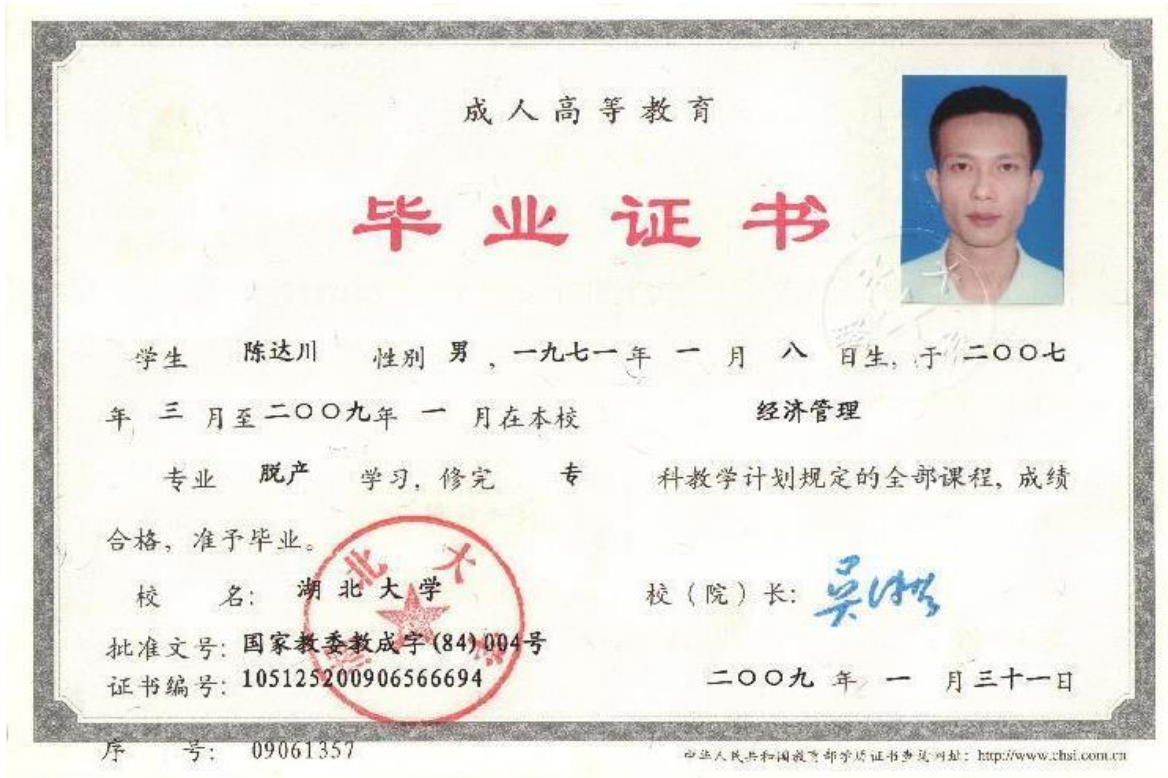 成人高等教育
毕业证书
学生 陈达川 性别 男 , 一九七一 年 一 月 八 日生, 于 二〇〇七
年 三 月至 二〇〇九年 一 月在本校 经济管理
专业 脱产 学习, 修完 专 科教学计划规定的全部课程, 成绩
合格, 准予毕业。
校 名: 湖北大学 校(院)长:
批准文号: 国家教委教成字(84)004号
证书编号: 105125200906566694 二〇〇九 年 一 月三十一日
序 号: 09061357 中华人民共和国教育部学历证书查询网址: http://www.chsi.com.cn